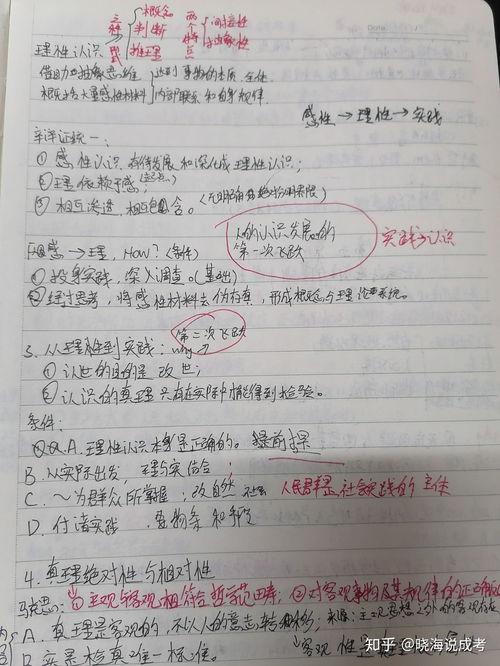 三种形式 概念 判断 推理 两个特点 间接性 抽象性
理性认识
借助于抽象思维 达到事物的本质、全体
概括大量感性材料 内部联系和自身规律
感性→理性→实践
辩证统一:
① 感性认识有待发展和深化成理性认识;
② 理依赖于感;
③ 相互渗透,相互包含。
人的认识发展的
第一次飞跃
实践→认识
感→理, How? (条件)
① 投身实践,深入调查。(基础)
② 经过思考,将感性材料去伪存真,形成概念与理论系统。
第二次飞跃
3. 从理性到实践: why→
① 认世的目的是改世;
② 认识的真理只有在实际中才能得到检验。
条件:
A. 理性认识本身是正确的。 前提
B. 从实际出发,理与实结合;
C. ~为群众所掌握,改自然 社会 人民群众是社会实践的主体
D. 付诸实践
4. 真理绝对性与相对性
马克思: ① 主观与客观相符合哲学范畴, ② 对客观事物及其规律的正确
A. 真理是客观的,不以人的意志转移的;
B. 实是检真唯一标准。
知乎 @晓海说成考